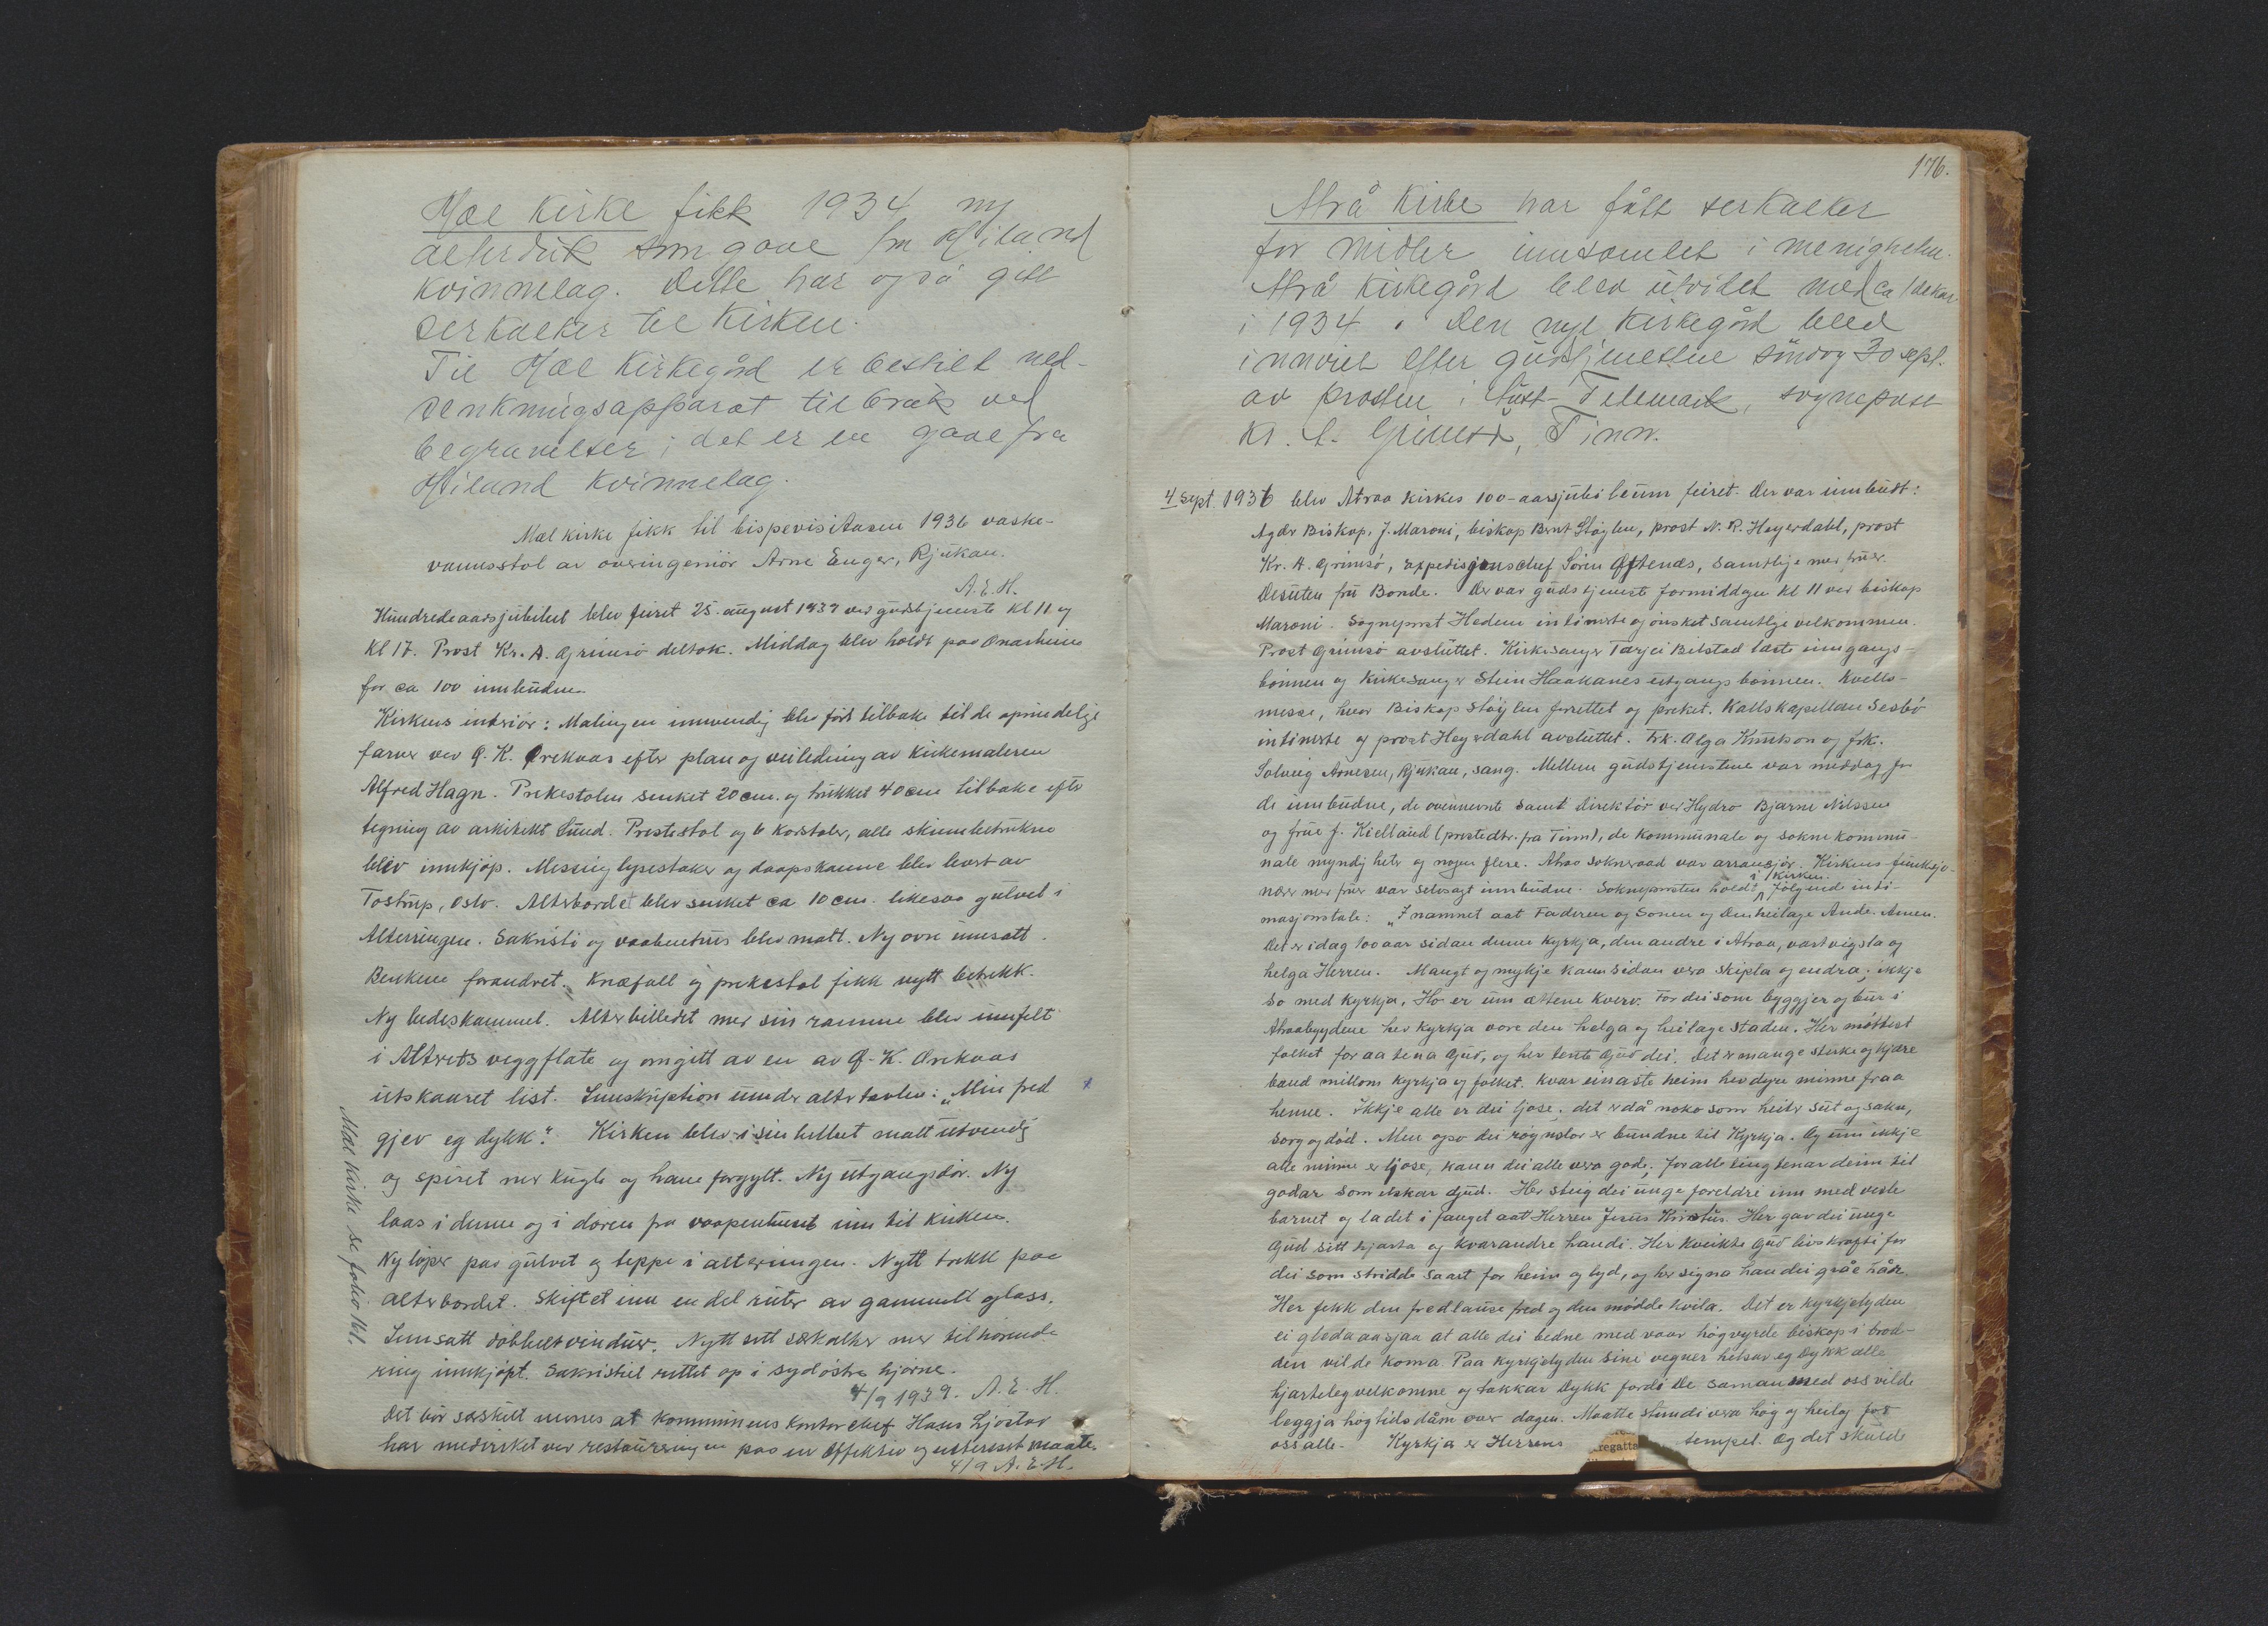 Mæl Kirke fikk 1934 ny
alterduk som gave fra Miland
Kvinnelag. Dette har også gitt
serkalker til Kirken.
Til Mæl Kirkegård er bestilt ned-
senkningsapparat til bruk ved
begravelser; det er en gave fra
Miland Kvinnelag.
Mæl kirke fikk til bispevisitasen 1936 vaske-
vannsstol av overingeniör Arne Enger, Rjukan.
A.E.H.
Hundredeaarsjubileet blev feiret 25. august 1939 ved gudstjeneste kl 11 og
kl 17. Prost Kr. A. Grimsö deltok. Middag blev holdt paa Onarheim
for ca 100 innbudne.
Kirkens interiör: Malingen innvendig blev fört tilbake til de oprindelige
farver ved G. K. Ørekvas efter plan og veiledning av kirkemaleren
Alfred Hagn. Prekestolen senket 20 cm. og trukket 40 cm tilbake efter
tegning av arkitekt Lund. Prestestol og 6 korstoler, alle skinnbetrukne
blev innkjöp. Messing lysestaker og daapskanne blev levert av
Tostrup, Oslo. Alterbordet blev senket ca 10 cm. likesaa gulvet i
Alterringen. Sakristi og vaabenhus blev malt. Ny ovn innsatt.
Benkene forandret. Knæfall og prekestol fikk nytt betrekk.
Ny bedeskammel. Alterbilledet med sin ramme blev innfelt
i Altrets veggflate og omgitt av en av G. K. Ørekvas
utskaaret list. Innskription under altertavlen: "Min fred
gjev eg dykk". Kirken blev i sin helhet malt utvendig
og spiret med kugle og hane forgylt. Ny utgangsdör. Ny
laas i denne og i dören fra vaapenhuset inn til kirken.
Ny löper paa gulvet og teppe i alterringen. Nytt trekk paa
alterbordet. Skiftet inn en del ruter av gammelt glass.
Innsatt dobbeltvinduer. Nytt sett særkalker med tilhörende
ring innkjöpt. Sakristiet ruttet op i sydöstre hjörne.
4/9 1939. A. E. H.
Det bör særskilt nevnes at kommunens kontorchef Hans Ljöstad
har medvirket ved restaureringen paa en effektiv og interessert maate.
4/9 A. E. H.
Mæl kirke se folio 161.
176.
Atrå Kirke har fått serkalker
for midler innsamlet i menigheten.
Atrå Kirkegård blev utvidet med ca 1 dekar
i 1934. Den nye Kirkegård blev
innviet efter gudstjenesten söndag 30 sept.
av prosten i Aust-Telemark, sogneprest
Kr. A. Grimsö, Tinn.
4 Sept. 1936 blev Atraa kirkes 100-aarsjubileum feiret. Der var innbudt:
Agder Biskop, J. Maroni, biskop Bernt Stöylen, prost N. R. Heyerdahl, prost
Kr. A. Grimsö, Expedisjonschef Sören Oftenæs, samtlige med fruer.
Desuten fru Bonde. Der var gudstjeneste formiddagen kl 11 ved biskop
Maroni. Sogneprest Hedem intimerte og önsket samtlige velkommen.
Prost Grimsö avsluttet. Kirkesanger Tarjei Bilstad læste inngangs-
bönnen og kirkesanger Stein Haakanes utgangsbönnen. Kvells-
messe, hvor Biskop Stöylen forrettet og preket. Kallskapellan Sesbö
intimerte og prost Heyerdahl avsluttet. Frk. Olga Knutson og frk.
Solveig Arnesen, Rjukan, sang. Mellem gudstjenestene var middag for
de innbudne, de ovennevnte samt direktör ved Hydro Bjarne Nilssen
og frue f. Kielland (prestedtr. fra Tinn), de kommunale og sokne kommu-
nale myndigheter og nogen flere. Atraa Sokneraad var arrangör. Kirkens funksjo-
nærer med fruer var selvsagt innbudne. Sokneprosten holdt i kirken fölgende inti-
masjonstale: "I namnet aat Faderen og Sonen og Den heilage Ande. Amen.
Det er idag 100 aar sidan denne kyrkja, den andre i Atraa, vart vigsla og
helga Herren. Mangt og mykje kann sidan vera skipla og endra; ikkje
so med kyrkja. Ho er um ættene kverv. For dei som byggjer og bur i
Atraabygdene hev kyrkja vore den helga og heilage staden. Her möttest
folket for aa tena Gud, og her tente Gud dei. Det er mange sterke og kjære
band millom kyrkja og folket. Kvar einaste heim hev dyre minne fraa
henne. Ikkje alle er dei ljose; det er då noko som heiter sut og sakn,
sorg og död. Men ogso dei röynslor er bundne til kyrkja. Og um ikkje
alle minne er ljose, kann dei alle vera gode; for alle ting tenar deim til
godar som elskar Gud. Her steig dei unge foreldri inn med vesle
barnet og la det i fanget aat Herren Jesus Kristus. Her gav dei unge
Gud sitt hjarta og kvarandre handi. Her kveikte Gud livskrafti for
dei som stridde saart for heim og lyd, og her signa han dei gråe håer.
Her fekk den fredlause fred og den mödde kvila. Det er kyrkjelyden
ei gleda aa sjaa at alle dei bedne med vaar högvyrde biskop i brod-
den vilde koma. Paa kyrkjelyden sine vegner helsar eg Dykk alle
hjarteleg velkomne og takkar Dykk fordi De saman med oss vilde
leggja högtidsdåm over dagen. Maatte stundi vera hög og heilag for
oss alle. Kyrkja er Herrens tempel. Og det skulde
regatta